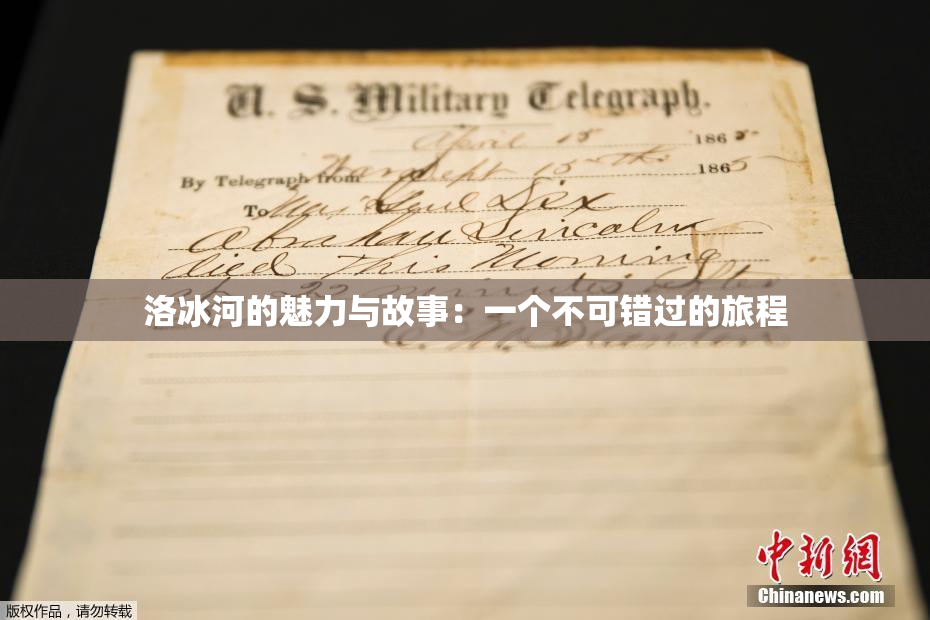 U. S. Military Telegraph.
April 15 1865
By Telegraph from War Dept 15th 1865
To Maj Genl Dix
Abraham Lincoln
died This Morning
at 22 minutes after
洛冰河的魅力与故事：一个不可错过的旅程
E. M. Stanton
中新網
Chinanews.com
版权作品，请勿转载